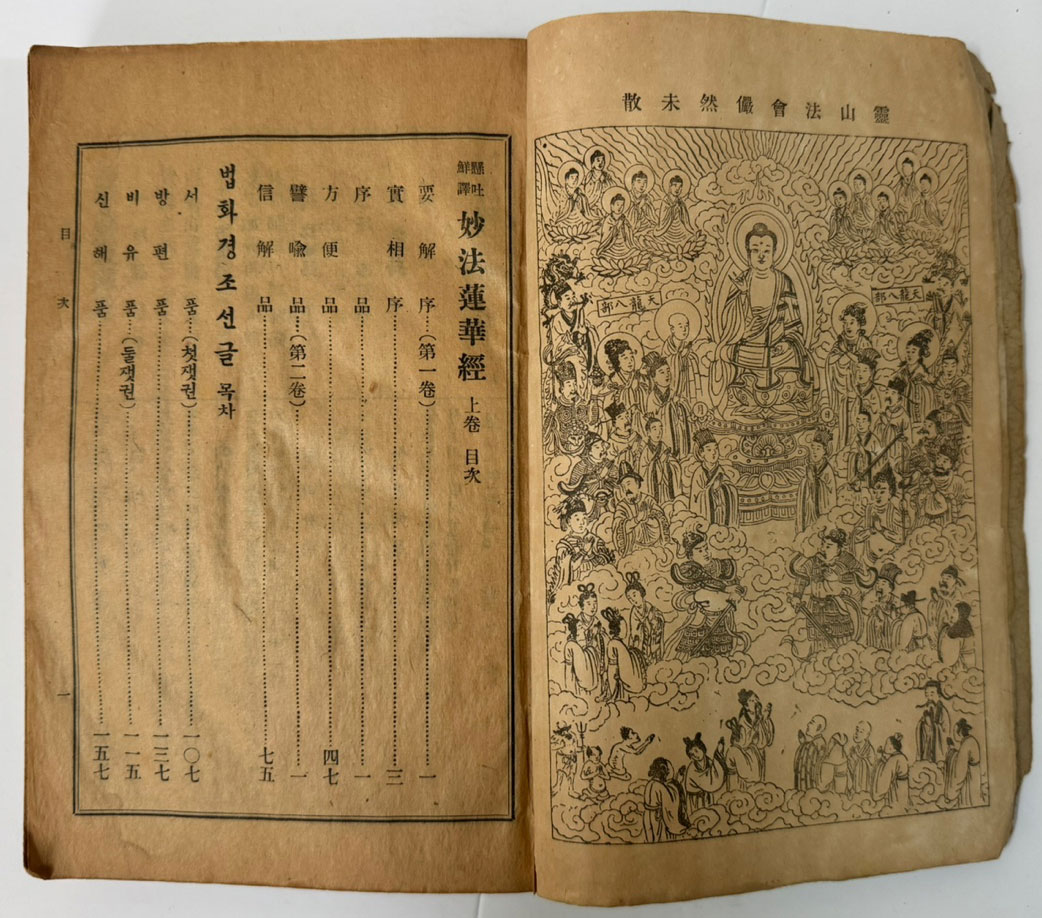 靈山法會儼然未散
天龍八部
天龍八部
懸吐鮮譯 妙法蓮華經 上卷 目次
要解序……(第一卷)……一
實相序……三
序品……一
方便品……四七
譬喩品……(第二卷)……一
信解品……七五
법화경조선글 목차
서품……(첫잿권)……一〇七
방편품……一三七
비유품……(둘잿권)……一一五
신해품……一五七
目次
一